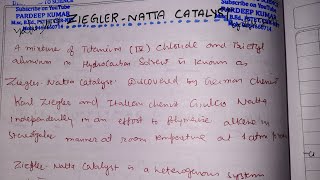 Subscribe on YouTube
PARDEEP KUMAR
ZIEGLER-NATTA CATALYST
Subscribe on YouTube
PARDEEP KUMAR
A mixture of Titanium (IV) Chloride and Triethyl
aluminium in Hydrocarbon Solvent is known as
Ziegler-Natta Catalyst. Discovered by German chemist
Karl Ziegler and Italian chemist Giulio Natta
Independently in an effort to Polymerise alkene in
manner at room temperature at 1 atm
Ziegler-Natta Catalyst is a heterogenous system